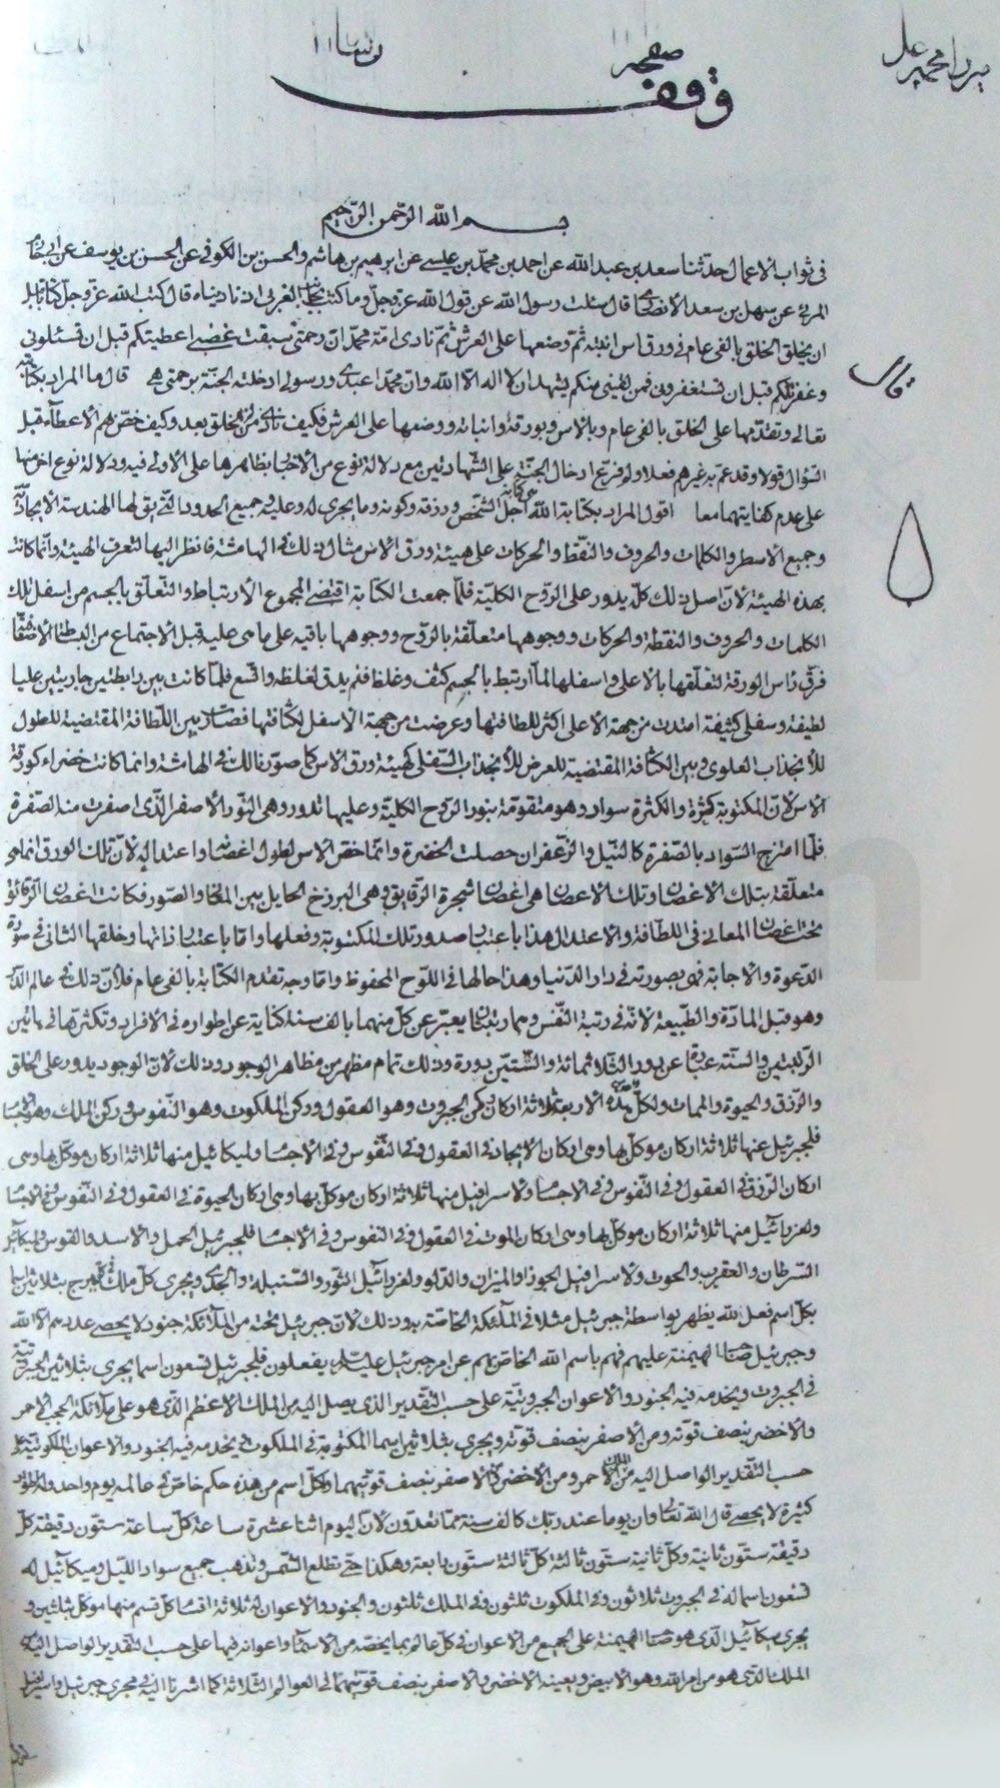 وقف
بسم الله الرحمن الرحيم
في ثواب الاعمال حدثنا سعد بن عبد الله عن احمد بن محمد بن عيسى عن ابرهيم بن هاشم والحسن بن الكوفي عن الحسن بن يوسف عن
عن سهل بن سعد الانصاري قال سئلت رسول الله عن قول الله عز وجل وما كنت بجانب الغربي اذ نادينا قال كتب الله عز وجل كتابا قبل
ان يخلق الخلق بالفي عام في ورق اس انبته ثم وضعها على العرش ثم نادى امة محمد ان رحمتي سبقت غضبي اعطيتكم قبل ان تسئلوني
وغفرت لكم قبل ان تستغفروني فمن لقيني منكم يشهد ان لا اله الا الله وان محمدا عبدي ورسولي ادخلته الجنة برحمتي قال ما المراد بكتابته
تعالى وتقدمها على الخلق بالفي عام وبالاس وبورقه وانباته ووضعها على العرش فكيف نادى من لم يخلق بعد وكيف خصهم الاعطاء قبل
السؤال قولا وقد عم به غيرهم فعلا ولم فرع ادخال الجنة على الشهادتين مع دلالة نوع من الاخبار بظاهرها على الاولى فيه ودلالة نوع اخر منها
على عدم كفايتهما معا اقول المراد بكتابة الله اجل الشخص ورزقه وكونه وما يجري له وعليه في جميع الحدود التي يق لها الهندسة الايجادية
وجميع الاسطر والكلمات والحروف والنقط والحركات على هيئة ورق الاس مثال ذلك في الهامشة فانظر اليها لتعرف الهيئة وانما كانت
بهذه الهيئة لان اصل ذلك كله يدور على الروح الكلية فلما جمعت الكتابة اقتضى المجموع الارتباط والتعلق بالجسم من اسفل تلك
الكلمات والحروف والنقطة والحركات ووجوهها متعلقة بالروح ووجوهها باقية على ما هي عليه قبل الاجتماع من البساطة الاضافية
فرق راس الورقة لتعلقها بالاعلى واسفلها لما ارتبط بالجسم كثف وغلظ فلم يدق لغلظه واتسع فلما كانت بين رابطتين جاريتين عليا
لطيفة وسفلى كثيفة امتدت من جهة الاعلى اكثر للطافتها وعرضت من جهة الاسفل لكثافتها فصارت بين اللطافة المقتضية للطول
للانجذاب العلوي وبين الكثافة المقتضية للعرض للانجذاب السفلى كهيئة ورق الاس كما صورنا لك في الهامشة وانما كانت خضراء كورقة
الاس لان المكتوبة كثرة والكثرة سواد وهو متقومة بنور الروح الكلية وعليها تدور وهي النور الاصفر الذي اصفرت منه الصفرة
فلما امتزج السواد بالصفرة كالنيل والزعفران حصلت الخضرة وانما خص الاس لطول اغصانه واعتداله لان تلك الورق انما هي
متعلقة بتلك الاغصان وتلك الاغصان هي اغصان شجرة الرقايق وهي البرزخ الحايل بين المعاني والصور فكانت اغصان الرقائق
تحت اغصان المعاني في اللطافة والاعتدال هذا باعتبار صدور تلك المكتوبة وفعلها واما باعتبار ذاتها وخلقها الثاني في سورة
الدعوة والاجابة فهي بصورته في دار الدنيا وهذا حالها في اللوح المحفوظ واما وجه تقدم الكتابة بالفي عام فلان ذلك في عالم الذر
وهو قبل المادة والطبيعة لانه في رتبة النفس وهما رتبتان يعبر عن كل منهما بالف سنة كناية عن اطواره في الافراد وتكثرها في هاتين
الرتبتين والسنة عبارة عن دور الثلاثمائة والستين دورة وذلك تمام مظهر من مظاهر الوجود وذلك لان الوجود يدور على الخلق
والرزق والحيوة والممات ولكل هذه الاربعة ثلاثة اركان ركن الجبروت وهو العقول وركن الملكوت وهو النفوس وركن الملك وهو الاجسام
فلجبرئيل عنها ثلاثة اركان موكل بها وهي اركان الايجاد في العقول وفي النفوس وفي الاجسام ولميكائيل منها ثلاثة اركان موكل بها وهي
اركان الرزق في العقول وفي النفوس وفي الاجسام ولاسرافيل منها ثلاثة اركان موكل بها وهي اركان الحيوة في العقول وفي النفوس وفي الاجسام
ولعزرائيل منها ثلاثة اركان موكل بها وهي اركان الموت في العقول وفي النفوس وفي الاجسام فلجبرئيل الحمل والاسد والقوس ولميكائيل
السرطان والعقرب والحوت ولاسرافيل الجوزا والميزان والدلو ولعزرائيل الثور والسنبلة والجدي ويجري كل ملك في كل برج بثلاثين اسما
بكل اسم فعل لله يظهر بواسطة جبرئيل مثلا في الملائكة الخاصة به وذلك لان جبرئيل تحته من الملائكة جنود لا يحصى عددهم الا الله
وجبرئيل الهيمنة عليهم فهم باسم الله الخاص بهم عن امر جبرئيل عليه السلام يفعلون فلجبرئيل تسعون اسما يجري بثلاثين الجبروتية
في الجبروت ويخدمه فيه الجنود والاعوان الجبروتية على حسب التقدير الذي يصل اليه من الملك الاعظم الذي هو على ملائكة الحجب الاحمر
والاخضر بنصف قوته ومن الاصفر بنصف قوته ويجري بثلاثين اسما المكتوبة في الملكوت ويخدمه فيه الجنود والاعوان الملكوتية على
حسب التقدير الواصل اليه من الملك الاحمر ومن الاخضر والاصفر بنصف قوتيهما ولكل اسم من هذه حكم خاص في عالمه يوم واحد وله
كثيرة لا يحصى قال الله تعالى وان يوما عند ربك كالف سنة مما تعدون لان اليوم اثنا عشرة ساعة كل ساعة ستون دقيقة كل
دقيقة ستون ثانية وكل ثانية ستون ثالثة كل ثالثة ستون رابعة وهكذا حتى تطلع الشمس وتذهب جميع سواد الليل وميكائيل له
تسعون اسما له في الجبروت ثلاثون وفي الملكوت ثلثون وفي الملك ثلثون والجنود والاعوان له ثلاثة اقسام كل قسم منها موكل بثلثين و
يجري ميكائيل الذي هو الهيمنة على الجميع من الاعوان في كل عالم بما يخصه من الاسماء واعوانه فيها على حسب التقدير الواصل اليه
الملك الذي هو من امر الله وهو الابيض وبعينه الاخضر والاصفر بنصف قوتيهما في العوالم الثلاثة كما اشرنا اليه في مجرى جبرئيل واسرافيل